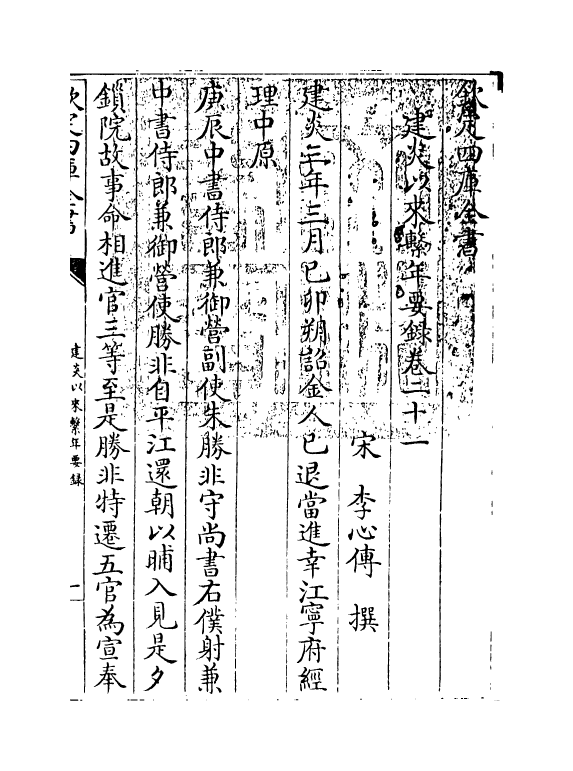 欽定四庫全書
建炎以來繫年要録卷二十一
宋 李心傳 撰
建炎三年三月己卯朔詔金人已退當進幸江寧府經
理中原
庚辰中書侍郎兼御營副使朱勝非守尚書右僕射兼
中書侍郎兼御營使勝非自平江還朝以晡入見是夕
鎖院故事命相進官三等至是勝非特遷五官為宣奉
欽定四庫全書
建炎以來繫年要録
一